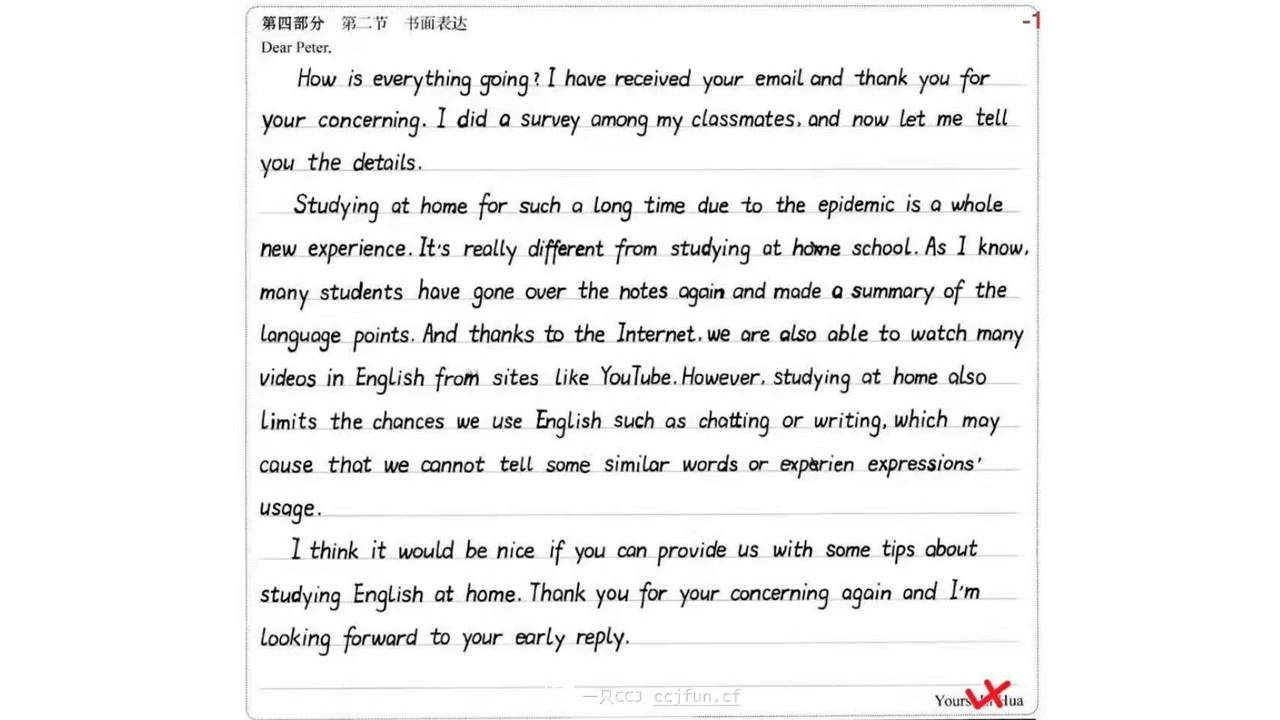 第四部分 第二节 书面表达
-1
Dear Peter,
How is everything going? I have received your email and thank you for
your concerning. I did a survey among my classmates, and now let me tell
you the details.
Studying at home for such a long time due to the epidemic is a whole
new experience. It's really different from studying at school. As I know,
many students have gone over the notes again and made a summary of the
language points. And thanks to the Internet, we are also able to watch many
videos in English from sites like YouTube. However, studying at home also
limits the chances we use English such as chatting or writing, which may
cause that we cannot tell some similar words or expressions'
usage.
I think it would be nice if you can provide us with some tips about
studying English at home. Thank you for your concerning again and I'm
looking forward to your early reply.
Yours Hua
一只CCJ ccjfun.cf